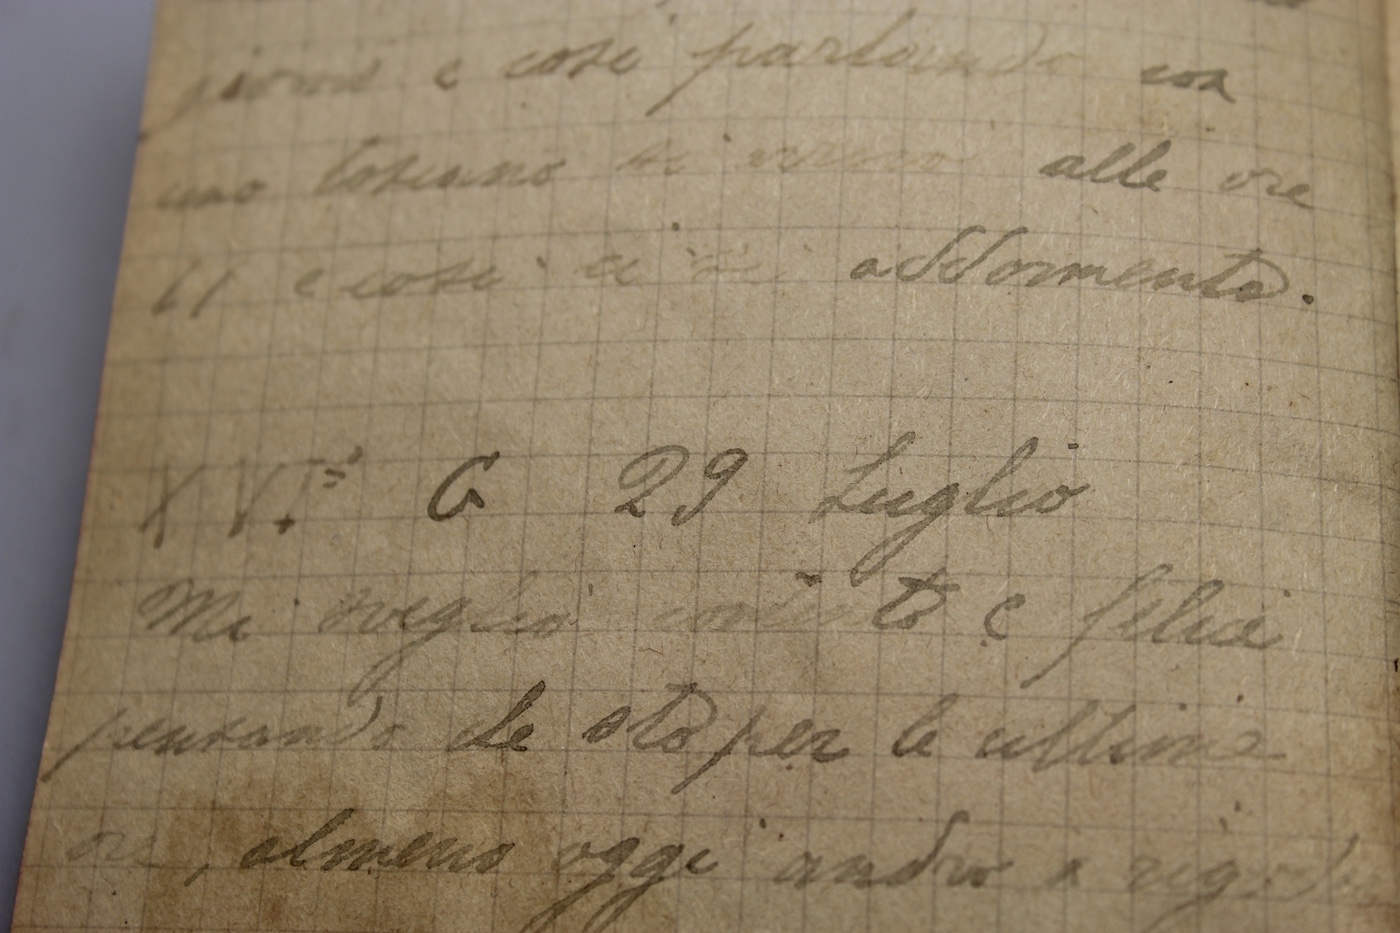 giorni e così parlando con
uno toscano alle ore
11 e così ci addormento.
XVI° G 29 Luglio
Mi sveglio contento e felice
pensando che sto per le ultime
ore, almeno oggi andrò a